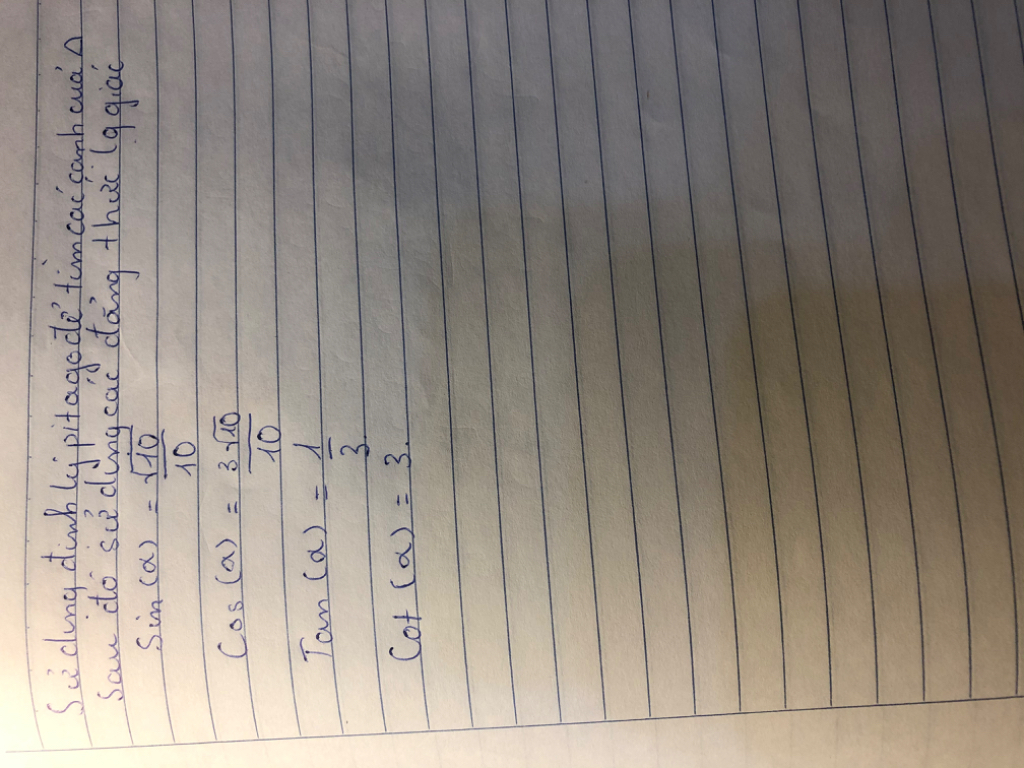 Sử dụng định lý pitago để tìm các cạnh cuả Δ
Sau đó sử dụng các đẳng thức lg giác
Sin(a) = √10/10
Cos(a) = 3√10/10
Tan(a) = 1/3
Cot(a) = 3.